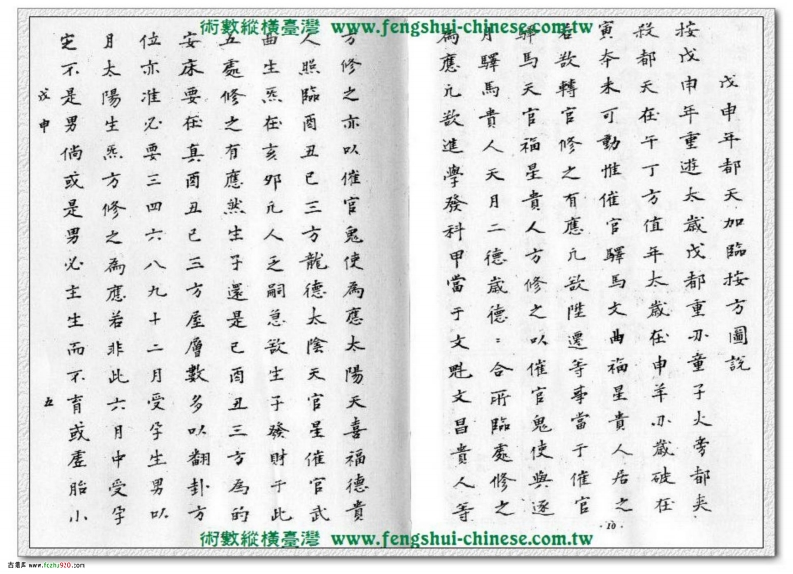 術數縱橫臺灣 www.fengshui-chinese.com.tw
戊申年都天加臨按方圖說
按戊申年重遊太歲戊都重刃童子火旁都夾
殺都天在午丁方值年太歲在申羊刃歲破在
寅本未可動惟催官驛馬文曲福星貴人居之
若欲轉官修之有應凢欲陞遷等事當于催官
驛馬天官福星貴人方修之以催官鬼使與逐
月驛馬貴人天月二德歲德：合所臨處修之
為應凢欲進學發科甲當于文魁文昌貴人等
10
方修之亦以催官鬼使為應太陽天喜福德貴
人照臨酉丑巳三方龍德太陰天官星催官武
曲生炁在亥卯凢人乏嗣急欲生子發財于此
五處修之有應然生子還是巳酉丑三方為的
安床要在真酉丑巳三方屋層數多以翻卦方
位亦准必要三四六八九十二月受孕生男以
月太陽生炁方修之為應若非此六月中受孕
定不是男倘或是男必主生而不育或虛胎小
戊申 五
術數縱橫臺灣 www.fengshui-chinese.com.tw
www.fozhu920.com